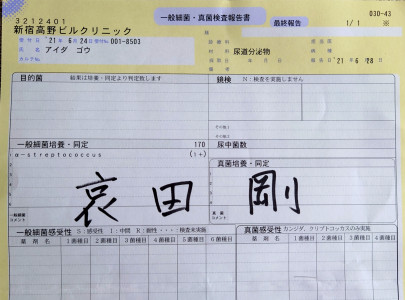 一般細菌・真菌検査報告書
03D-43
3212401
最終報告 1/1
新宿高野ビルクリニック
受付日 '21年 6月24日 受付No 001-8503
氏名 アイダ ゴウ
材料 尿道分泌物
'21年 6月28日
目的菌 結果は培養・同定より判定致します
鏡検 N:検査を実施しません
一般細菌培養・同定 170
尿中菌数
α-streptococcus (1+)
真菌培養・同定
哀田 剛
一般細菌コメント
真菌コメント
一般細菌感受性 S:感受性 I:中間 R:耐性 ・・・・:検査未実施
真菌感受性 カンジダ、クリプトコッカスのみ実施
薬剤名 1菌種目 2菌種目 3菌種目 4菌種目 5菌種目 6菌種目
薬剤名 1菌種目 2菌種目 3菌種目 4菌種目